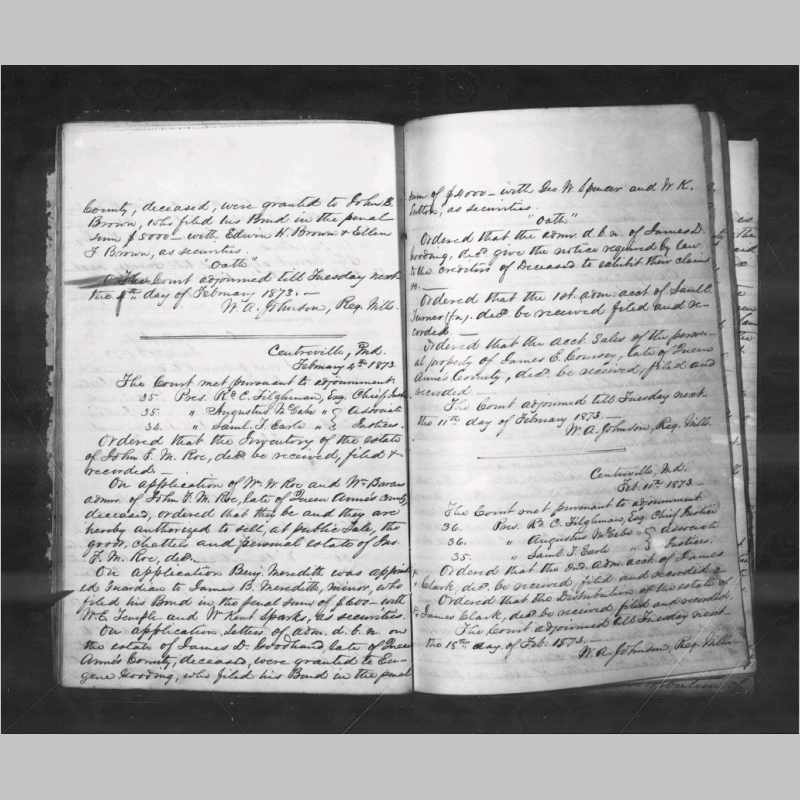 County, deceased, were granted to John B.
Brown, who filed his Bond in the penal
sum $5000 – with Edwin H. Brown & Ellen
F. Brown, as securities.
"Oath"
The Court adjourned till Tuesday next
the 4th day of February 1873. –
W. A. Johnson, Reg. Wills.
Centreville, Md.
February 4th 1873
The Court met pursuant to adjournment.
35 Pres. Rd. C. Tilghman, Esq. Chief Justice
35. " Augustus " } Associate
34. " Saml. T. Earle " } Justices.
Ordered that the Inventory of the estate
of John F. M. Roe, decd. be received, filed &
recorded –
On application of Wm W. Roe and Wm
admrs. of John F. M. Roe, late of Queen Anne's County,
deceased, ordered that they be and they are
hereby authorized to sell, at public Sale, the
goods, chattels and personal estate of Jno.
F. M. Roe, decd. –
On application Benj. Meredith was appoint-
ed Guardian to James B. Meredith, minor, who
filed his Bond in the penal sum of $600 – with
W. E. Temple and Wm Kent Sparks, as securities.
On application Letters of adm. d. b. n. on
the estate of James D. late of Queen
Anne's County, deceased, were granted to Eu-
gene Gooding, who filed his Bond in the penal
sum of $4000 – with Geo. W. Spencer and W. K.
as securities.
"Oath"
Ordered that the admr. d. b. n. of James D.
decd. give the notice required by law
to the creditors of Deceased to exhibit their claims
Ordered that the 1st. adm. acct. of Saml.
Turner decd. be received filed and re-
corded –
Ordered that the acct. Sales of the person-
al property of James E. Coursey, late of Queen
Anne's County, decd. be received, filed and
recorded.
The Court adjourned till Tuesday next
the 11th day of February 1873. –
W. A. Johnson, Reg. Wills.
Centreville, Md.
Feb. 11th 1873 –
The Court met pursuant to adjournment
36. Pres. Rd. C. Tilghman, Esq. Chief Justice
36. " Augustus " } Associate
35. " Saml. T. Earle " } Justices.
Ordered that the 2nd adm. acct. of James
Clark, decd. be received, filed and recorded &
Ordered that the Distribution of the estate of
James Clark, decd. be received filed and recorded.
The Court adjourned till Tuesday next
the 18th day of Feb. 1873. –
W. A. Johnson, Reg. Wills